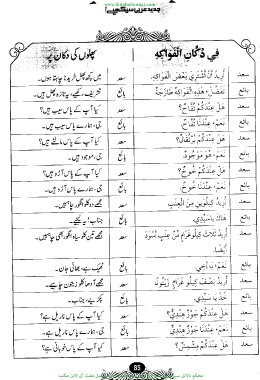 جدید عربی سیکھیں
پھلوں کی دکان پر
في دُكَّانِ الْفَوَاكِهِ
سعد أُرِيدُ أَنْ أَشْتَرِيَ بَعْضَ الْفَوَاكِهِ. سعد میں کچھ پھل خریدنا چاہتا ہوں۔
بائع تَفَضَّلْ، هَذِهِ الْفَوَاكِهُ طَازَجَةٌ بائع تشریف رکھیے، یہ تازہ پھل ہیں۔
سعد هَلْ عِنْدَكُمْ تُفَّاحٌ؟ سعد کیا آپ کے پاس سیب ہیں؟
بائع نَعَمْ، عِنْدَنَا تُفَّاحٌ. بائع جی، ہمارے پاس سیب ہیں۔
سعد هَلْ عِنْدَكُمْ بُرْتُقَالٌ؟ سعد کیا آپ کے پاس مالٹے ہیں؟
بائع نَعَمْ، هُوَ مَوْجُودٌ. بائع جی، موجود ہیں۔
سعد هَلْ عِنْدَكُمْ خُوخٌ؟ سعد کیا آپ کے پاس آڑو ہیں؟
بائع نَعَمْ، عِنْدَنَا خُوخٌ. بائع جی، ہمارے پاس آڑو ہیں۔
سعد أُرِيدُ كِيلُوَيْنِ مِنَ الْعِنَبِ سعد مجھے دو کلو انگور چاہییں۔
بائع هَاكَ يَا سَيِّدِي. بائع جناب! یہ لیجیے۔
سعد أُرِيدُ ثَلَاثَ كِيلُوغَرَامٍ مِنْ عِنَبٍ أَسْوَدَ أَيْضًا. سعد مجھے تین کلو سیاہ انگور بھی چاہییں۔
بائع نَعَمْ، يَا أَخِي. بائع ٹھیک ہے، بھائی جان۔
سعد أُرِيدُ نِصْفَ كِيلُو غَرَامٍ زَيْتُونًا سعد مجھے آدھا کلو زیتون چاہیے۔
بائع خُذْ يَا سَيِّدِي. بائع پکڑیے، جناب۔
سعد هَلْ عِنْدَكُمْ جَوْزٌ هِنْدِيٌّ؟ سعد کیا آپ کے پاس ناریل ہے؟
بائع نَعَمْ، عِنْدَنَا جَوْزٌ هِنْدِيٌّ بائع جی، ہمارے پاس ناریل ہے۔
سعد هَلْ عِنْدَكُمْ مِشْمِشٌ؟ سعد کیا آپ کے پاس خوبانی ہے؟
85